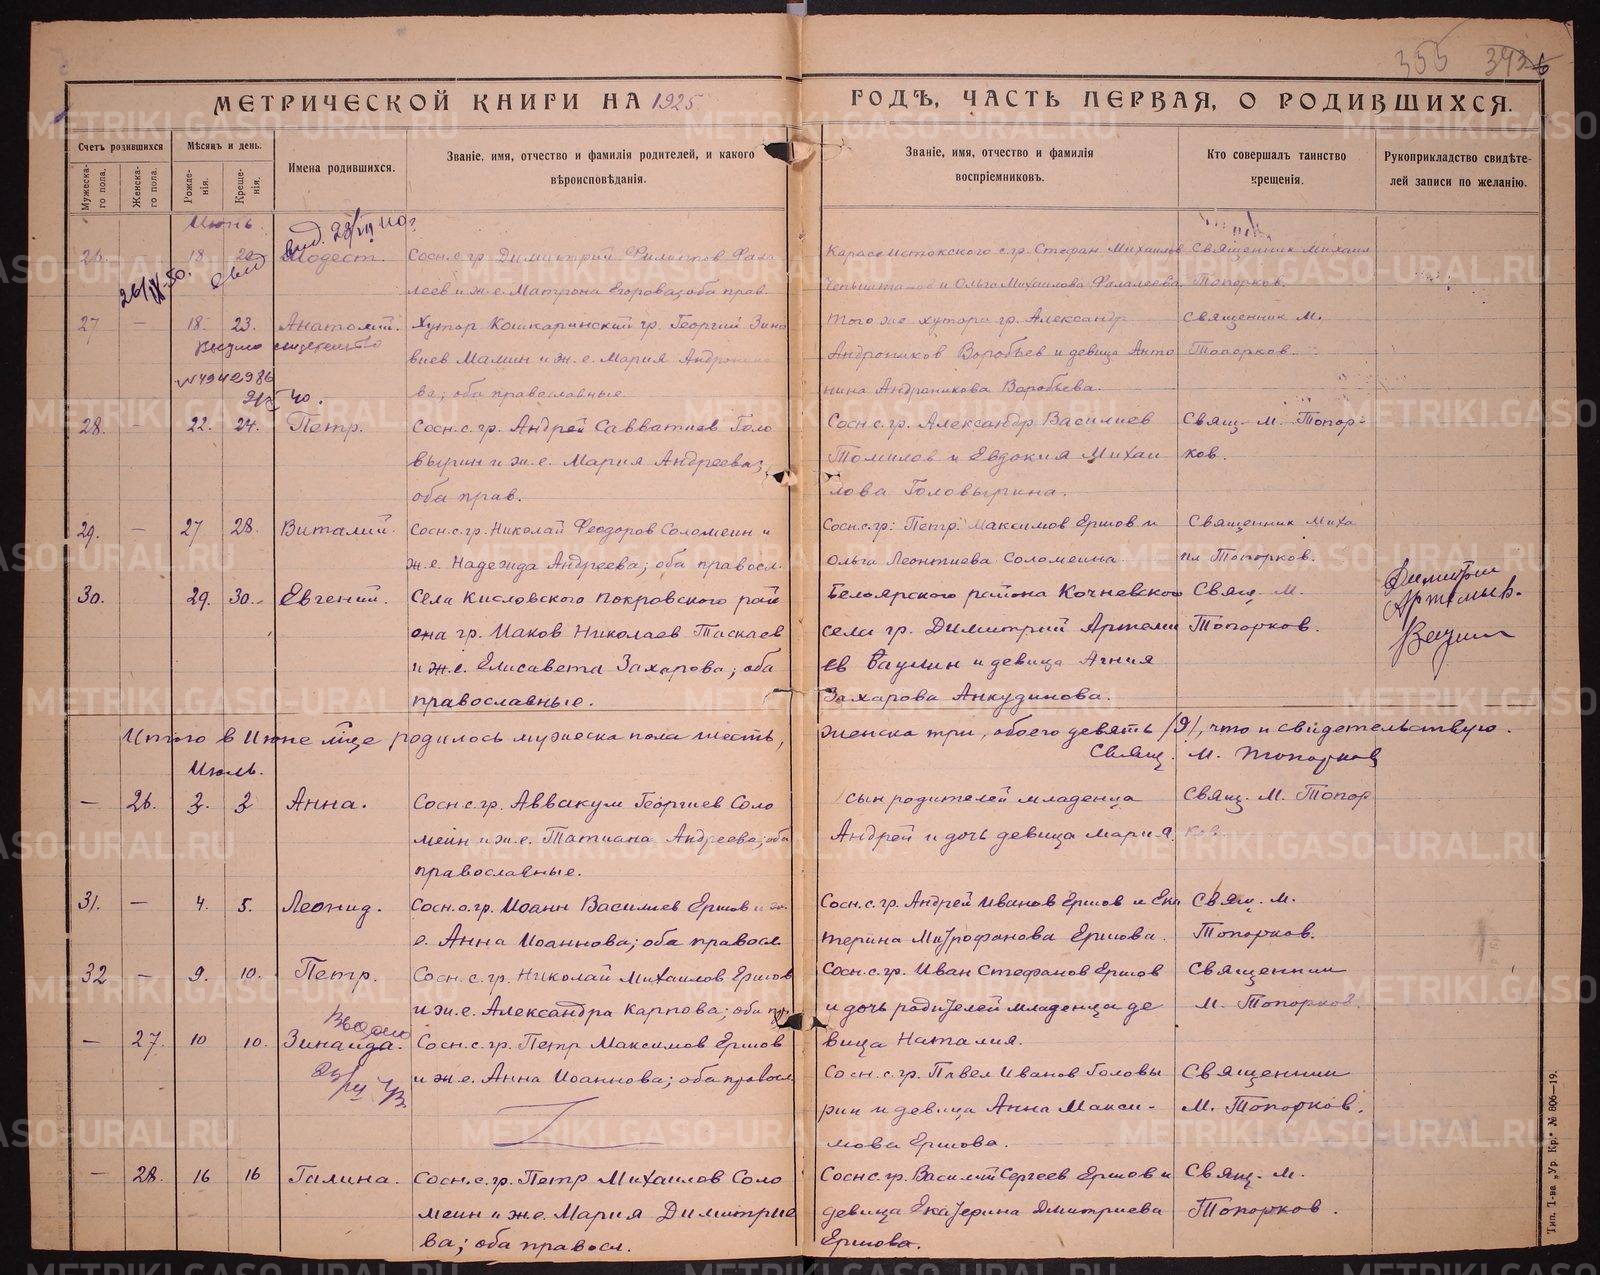 355 393
МЕТРИЧЕСКОЙ КНИГИ НА 1925 ГОДЪ, ЧАСТЬ ПЕРВАЯ, О РОДИВШИХСЯ.
Счетъ родившихся
Мужеска-го пола.
Женска-го пола.
Мѣсяцъ и день.
Рожде-нія.
Креще-нія.
Имена родившихся.
Званіе, имя, отчество и фамилія родителей, и какого
вѣроисповѣданія.
Званіе, имя, отчество и фамилія
воспріемниковъ.
Кто совершалъ таинство
крещенія.
Рукоприкладство свидѣте-
лей записи по желанію.
Июнь
26. 18. Модест. Сосн. с. гр. Димитрий Филиппов Фала
леев и ж. е. Матрона Егорова; оба прав.
Карасьистокского с. гр. Стефан Михаилов
и Ольга Михаилова Фалалеева.
Священник Михаил
Топорков.
27 — 18. 23. Анатолий. Хутор Кошкаринский гр. Георгий Зино
виев Мамин и ж. е. Мария Андронико
ва; оба православные
Того же хутора гр. Александр
Андроников Воробьев и девица Анто
нина Андроникова Воробьева.
Священник М.
Топорков.
28. — 22. 24. Петр. Сосн. с. гр. Андрей Савватиев Голо
вырин и ж. е. Мария Андреева;
оба прав.
Сосн с. гр. Александр Василиев
Томилов и Евдокия Михаи
лова Головырина.
Свящ. М. Топор-
ков.
29. — 27 28. Виталий. Сосн. с. гр. Николай Феодоров Соломеин и
ж. е. Надежда Андреева; оба правосл.
Сосн. с. гр: Петр Максимов Ершов и
Ольга Леонтиева Соломеина.
Священник Миха
ил Топорков.
30. 29. 30. Евгений. Села Кисловского Покровского рай
она гр. Иаков Николаев Таскаев
и ж. е. Елисавета Захарова; оба
православные.
Белоярского района Кочневского
села гр. Димитрий Артеми
ев Ваулин и девица Агния
Захарова Анкудинова.
Свящ. М.
Топорков.
Димитрий
Итого в Июне м-це родилось мужеска пола шесть, женска три, обоего девять /9/, что и свидетельствую.
Свящ. М. Топорков
Июль.
— 26. 2. 2 Анна. Сосн с. гр. Аввакум Георгиев Соло
меин и ж. е. Татиана Андреева; оба
православные.
сын родителей младенца
Андрей и дочь девица Мария.
Свящ. М. Топор
ков.
31. — 4. 5. Леонид. Сосн. с. гр. Иоанн Василиев Ершов и ж.
е. Анна Иоаннова; оба правосл.
Сосн. с. гр. Андрей Иванов Ершов и Ека
терина Митрофанова Ершова.
Свящ. М.
Топорков.
32 — 9. 10. Петр. Сосн. с. гр. Николай Михаилов Ершов
и ж. е. Александра Карпова; оба пр.
Сосн. с. гр. Иван Стефанов Ершов
и дочь родителей младенца де
вица Наталия.
Священник
М. Топорков.
— 27. 10 10. Зинаида. Сосн. с. гр. Петр Максимов Ершов
и ж. е. Анна Иоаннова; оба правосл
Сосн. с. гр. Павел Иванов Головы
рин и девица Анна Макси-
мова Ершова.
Священник
М. Топорков.
— 28. 16 16 Галина. Сосн. с. гр. Петр Михаилов Соло
меин и ж. е. Мария Димитрие
ва; оба правосл.
Сосн с. гр. Василий Сергеев Ершов и
девица Екатерина Дмитриева
Ершова.
Свящ. М.
Топорков.
Тип. Т-ва „Ур. Кр.“ № 806—19.
METRIKI.GASO-URAL.RU